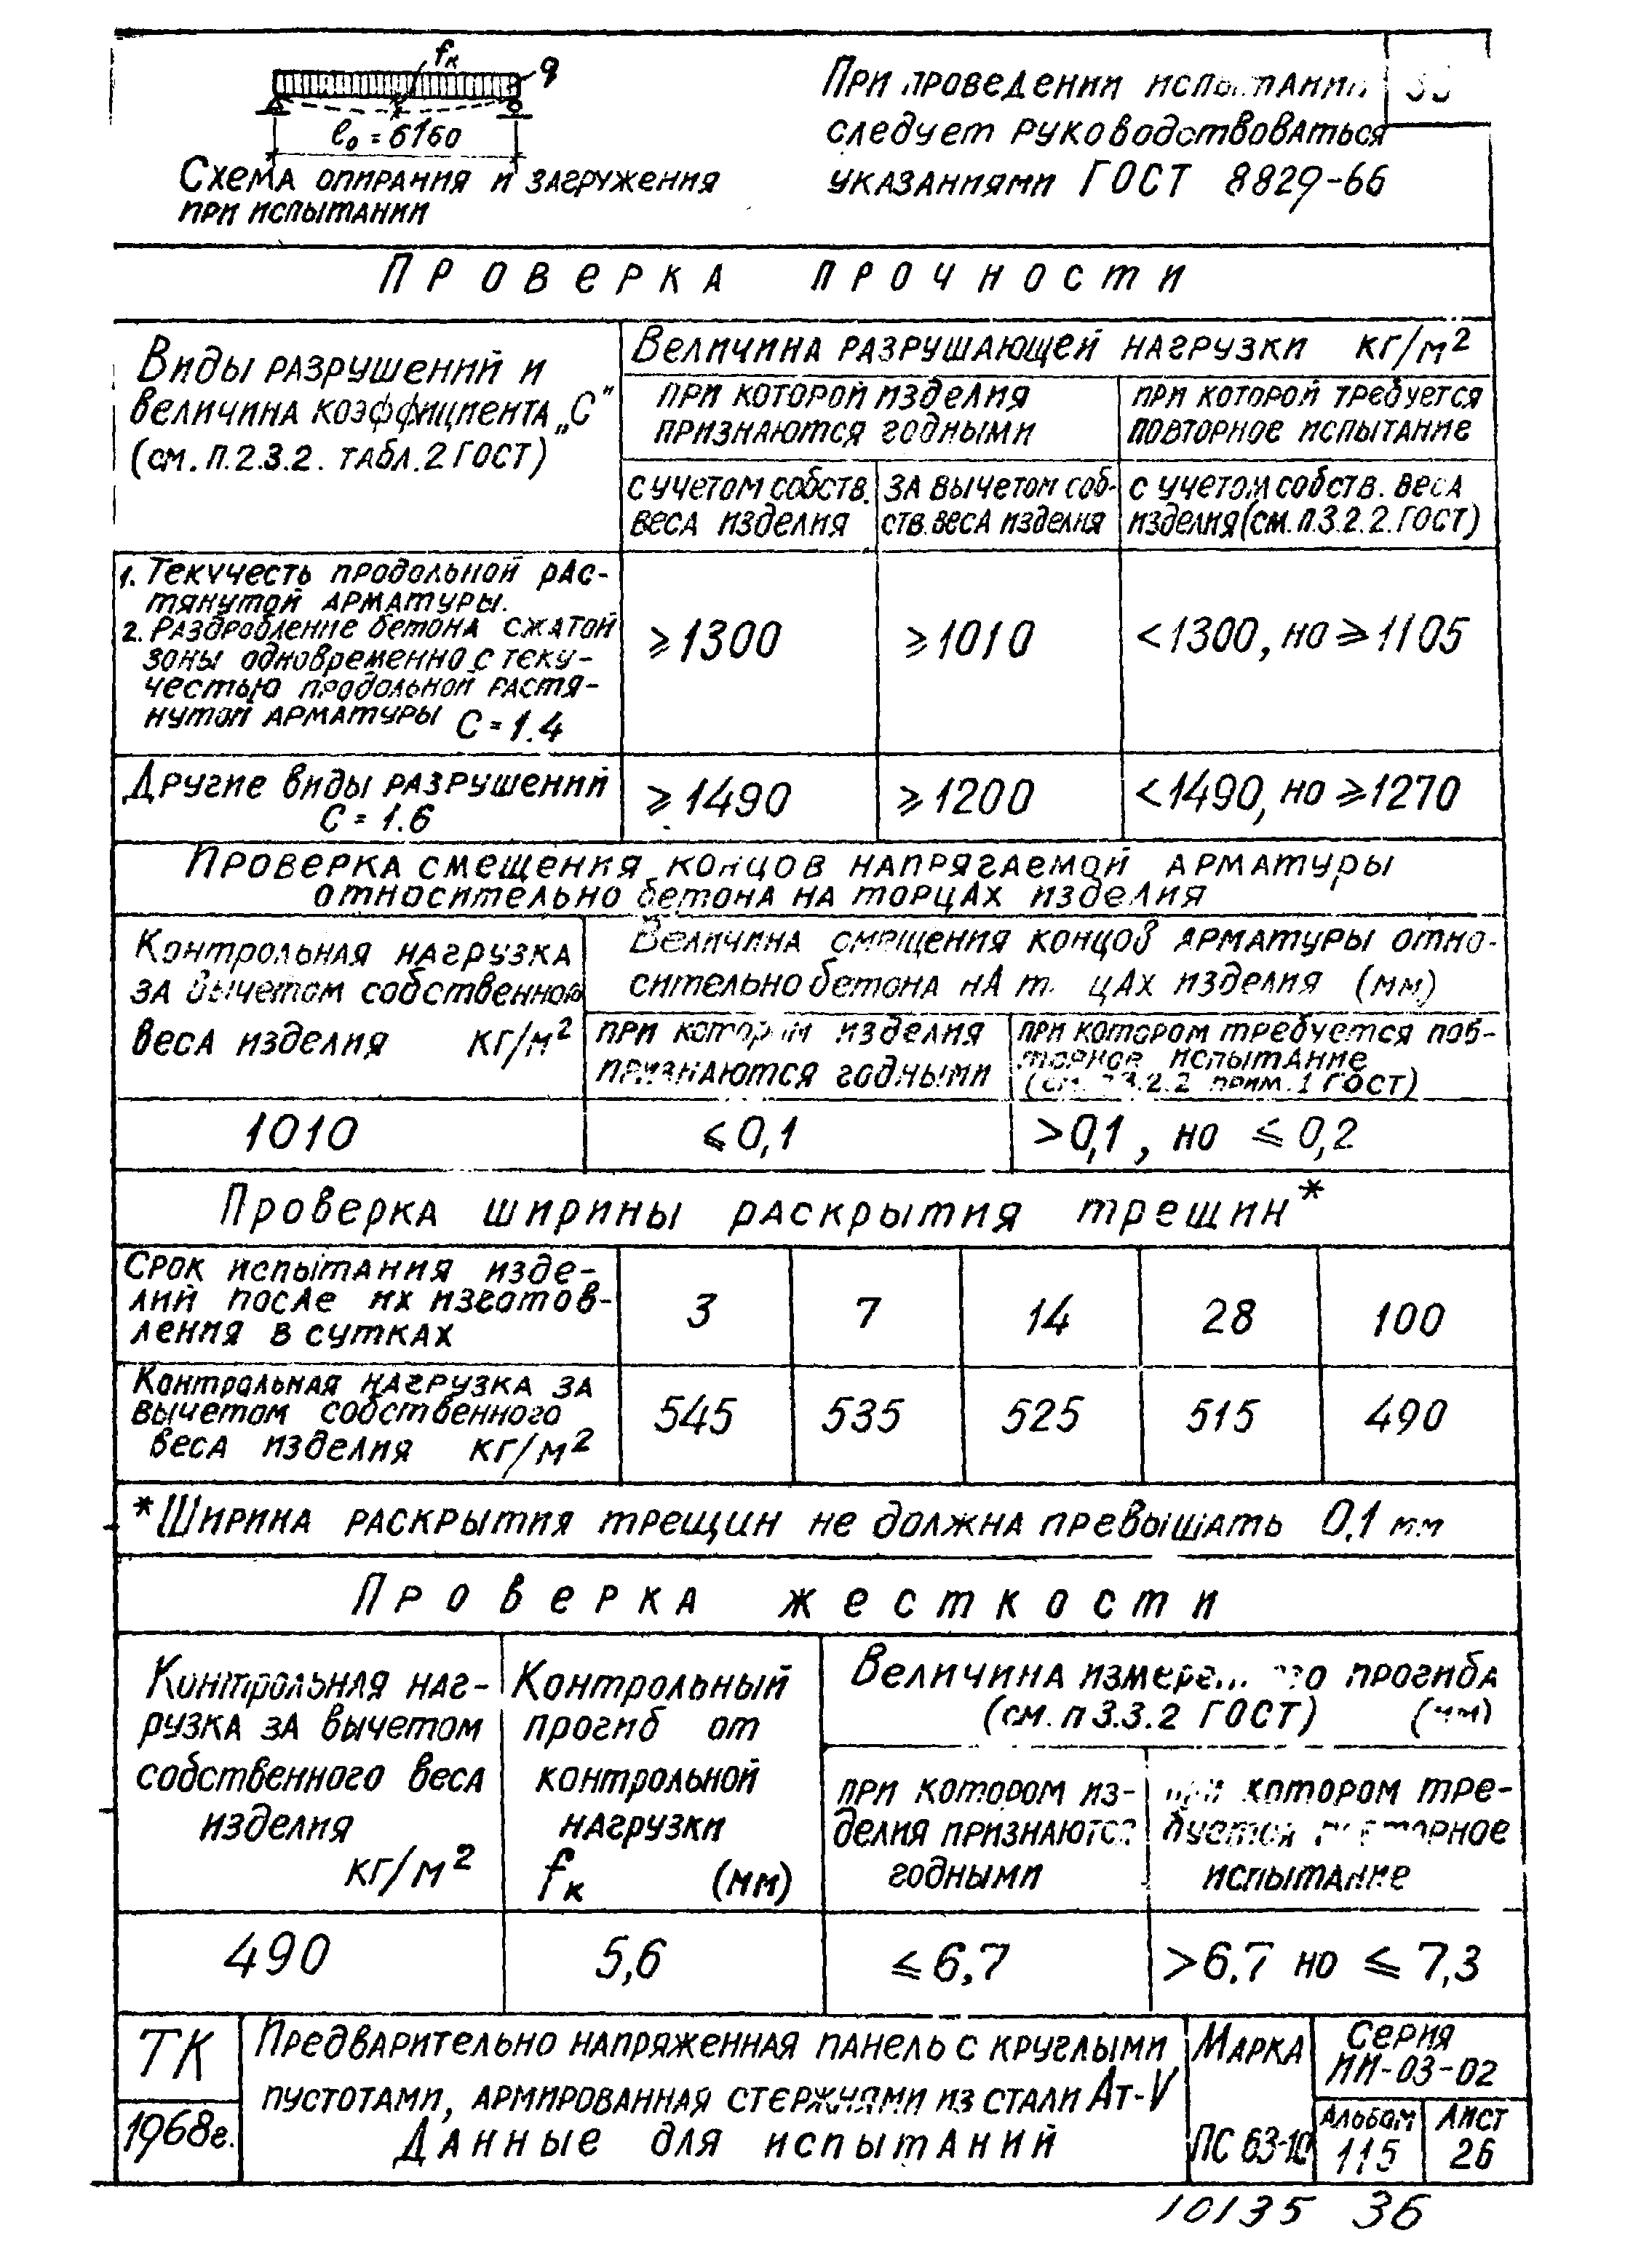 fк
q
ℓ₀ = 6160
Схема опирания и загружения
при испытании
При проведении испытании
следует руководствоваться
указаниями ГОСТ 8829-66
Проверка прочности
Виды разрушений и
величина коэффициента „С"
(см. п. 2.3.2. табл. 2 ГОСТ)
Величина разрушающей нагрузки кг/м²
при которой изделия
признаются годными
при которой требуется
повторное испытание
с учетом собств.
веса изделия
за вычетом соб-
ств. веса изделия
с учетом собств. веса
изделия (см. п. 3.2.2. ГОСТ)
1. Текучесть продольной рас-
тянутой арматуры.
2. Раздробление бетона сжатой
зоны одновременно с теку-
честью продольной растя-
нутой арматуры С = 1.4
≥1300
≥1010
<1300, но ≥1105
Другие виды разрушений
С = 1.6
≥1490
≥1200
<1490, но ≥1270
Проверка смещения концов напрягаемой арматуры
относительно бетона на торцах изделия
Контрольная нагрузка
за вычетом собственного
веса изделия кг/м²
Величина смещения концов арматуры отно-
сительно бетона на т. цах изделия (мм)
при котором изделия
признаются годными
при котором требуется пов-
торное испытание
(см. 3.2.2 прим. 1 ГОСТ)
1010
≤0,1
>0,1, но ≤ 0,2
Проверка ширины раскрытия трещин*
Срок испытания изде-
лий после их изготов-
ления в сутках
3
7
14
28
100
Контрольная нагрузка за
вычетом собственного
веса изделия кг/м²
545
535
525
515
490
*Ширина раскрытия трещин не должна превышать 0,1 мм
Проверка жесткости
Контрольная наг-
рузка за вычетом
собственного веса
изделия
кг/м²
Контрольный
прогиб от
контрольной
нагрузки
fк (мм)
Величина измеренного прогиба
(см. п 3.3.2 ГОСТ) (мм)
при котором из-
делия признаются
годными
при котором тре-
буется повторное
испытание
490
5,6
≤ 6,7
>6,7 но ≤ 7,3
ТК
1968г.
Предварительно напряженная панель с круглыми
пустотами, армированная стержнями из стали Ат-V
Данные для испытаний
Марка
ПС 63-10
Серия
ИИ-03-02
Альбом
115
Лист
26
10135 36